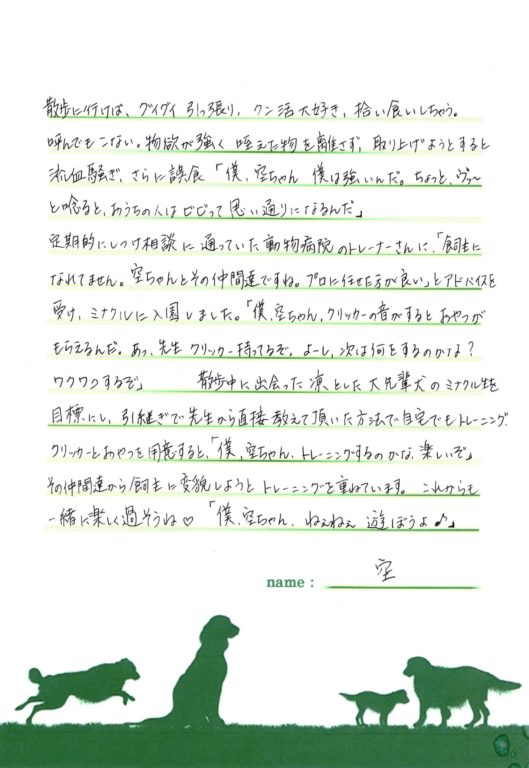 散歩に行けば、グイグイ引っ張り、クン活大好き、拾い食いしちゃう。
呼んでもこない。物欲が強く咥えた物を離さず、取り上げようとすると
流血騒ぎ、さらに誤食「僕、空ちゃん 僕は強いんだ。ちょっと、ヴゥ〜
と唸ると、おうちの人はビビって思い通りになるんだ」
定期的にしつけ相談に通っていた動物病院のトレーナーさんに、「飼主に
なれてません。空ちゃんとその仲間達ですね。プロに任せた方が良い」とアドバイスを
受け、ミナクルに入園しました。「僕、空ちゃん、クリッカーの音がするとおやつが
もらえるんだ。あっ、先生クリッカー持ってるぞ。よーし、次は何をするのかな？
ワクワクするぞ」 散歩中に出会った凛とした大先輩犬のミナクル生を
目標にし、引継ぎで先生から直接教えて頂いた方法で自宅でもトレーニング。
クリッカーとおやつを用意すると、「僕、空ちゃん、トレーニングするのかな、楽しいぞ」
その仲間達から飼主に変貌しようとトレーニングを重ねています。 これからも
一緒に楽しく過そうね♡ 「僕、空ちゃん、ねぇねぇ 遊ぼうよ♪」
name : 空